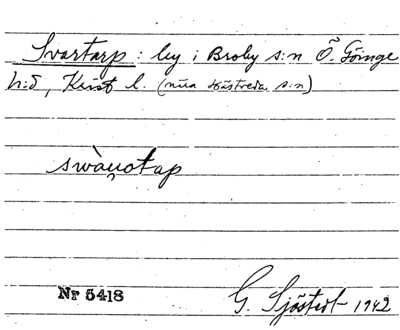 Svartarp : by i Broby s:n Ö. Göinge
h:d, Krist l. (nära Hästveda s:n)
swàṇotap
Nr 5418
G. Sjöstedt 1942